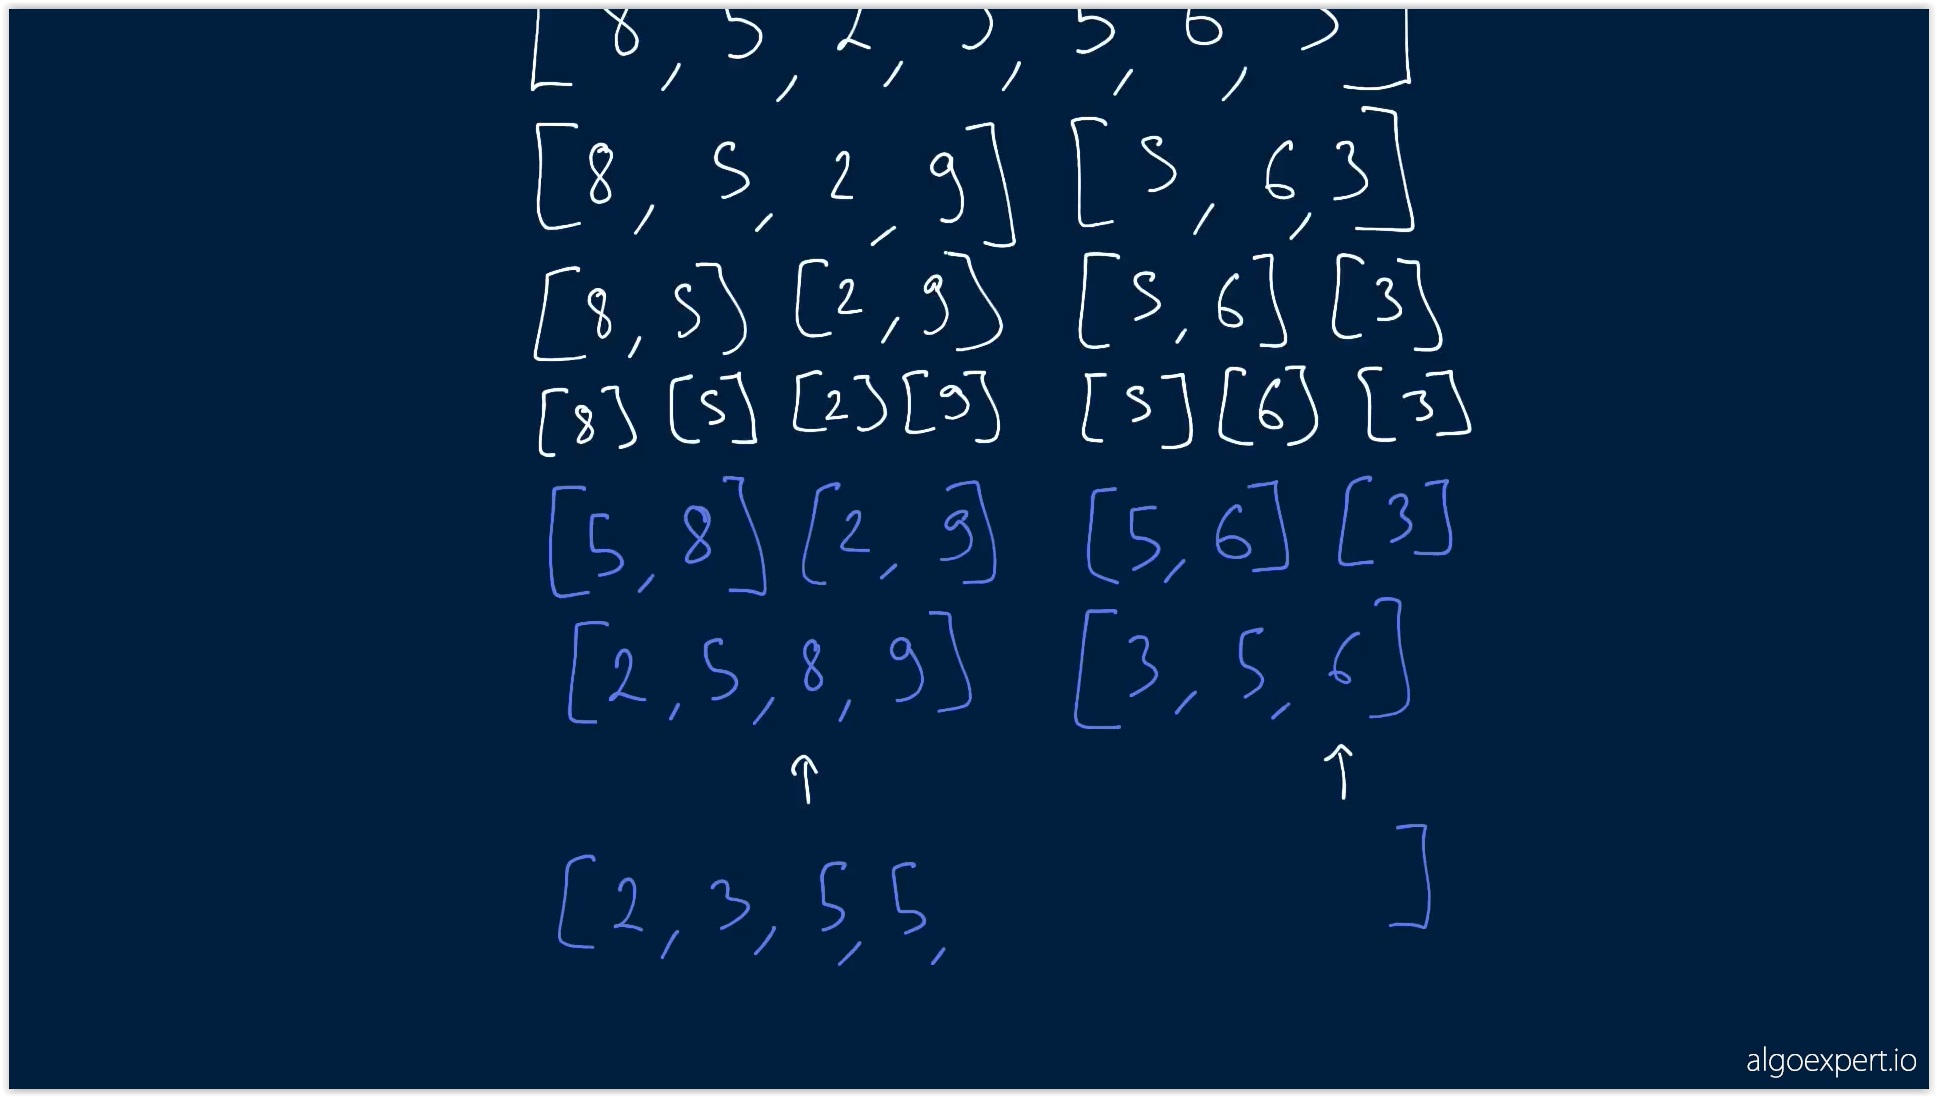 [8, 5, 2, 9, 5, 6, 3]
[8, 5, 2, 9] [5, 6, 3]
[8, 5] [2, 9] [5, 6] [3]
[8] [5] [2] [9] [5] [6] [3]
[5, 8] [2, 9] [5, 6] [3]
[2, 5, 8, 9] [3, 5, 6]
↑ ↑
[2, 3, 5, 5, ]
algoexpert.io